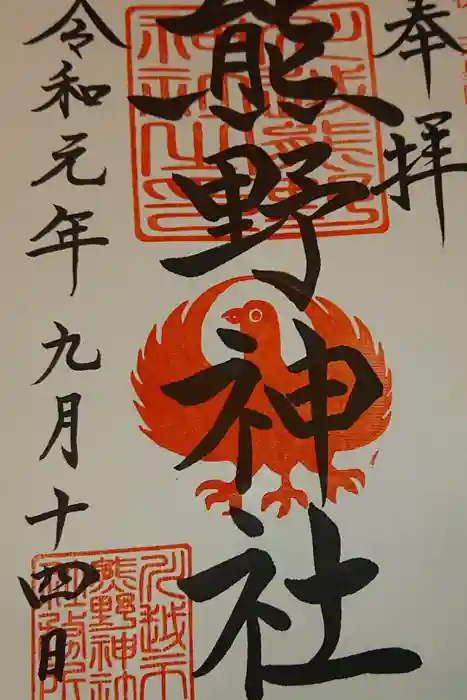 奉拝
熊野神社
令和元年九月十四日
川越市
熊野神社
社務所